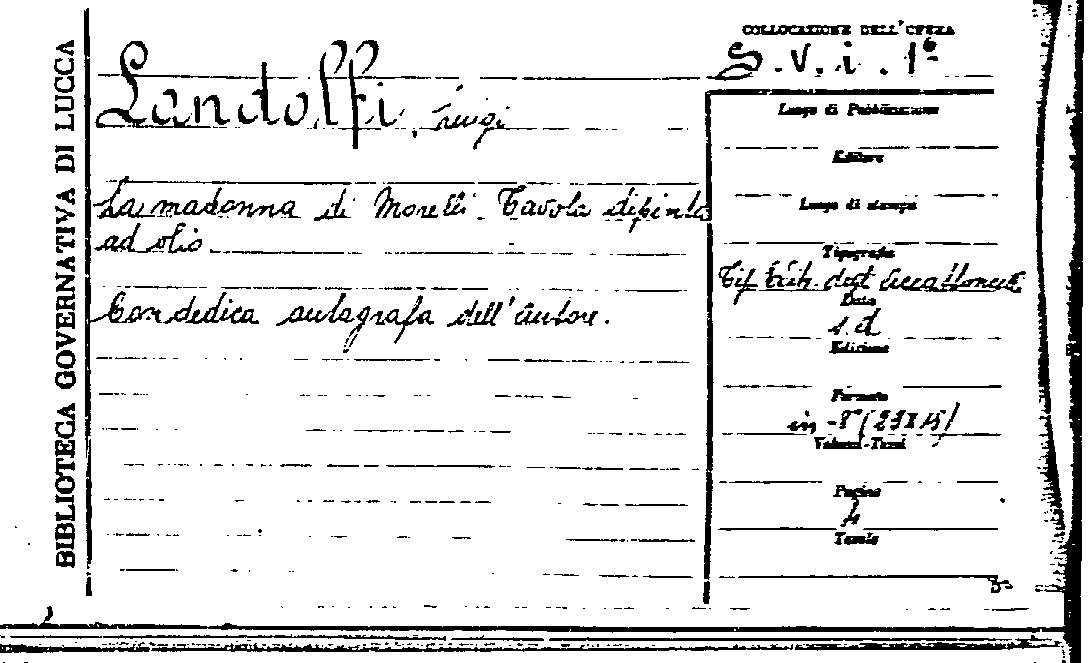 BIBLIOTECA GOVERNATIVA DI LUCCA
COLLOCAZIONE DELL'OPERA
S. V. i. 1º
Landolfi, Luigi
La madonna di Morelli. Tavola dipinta
ad olio.
Con dedica autografa dell'autore.
Luogo di Pubblicazione
Editore
Luogo di stampa
Tipografia
Tip. dell'Accattoncelle
Data
s. d
Edizione
Formato
in-8º
Volumi-Tomi
Pagine
4
Tavole